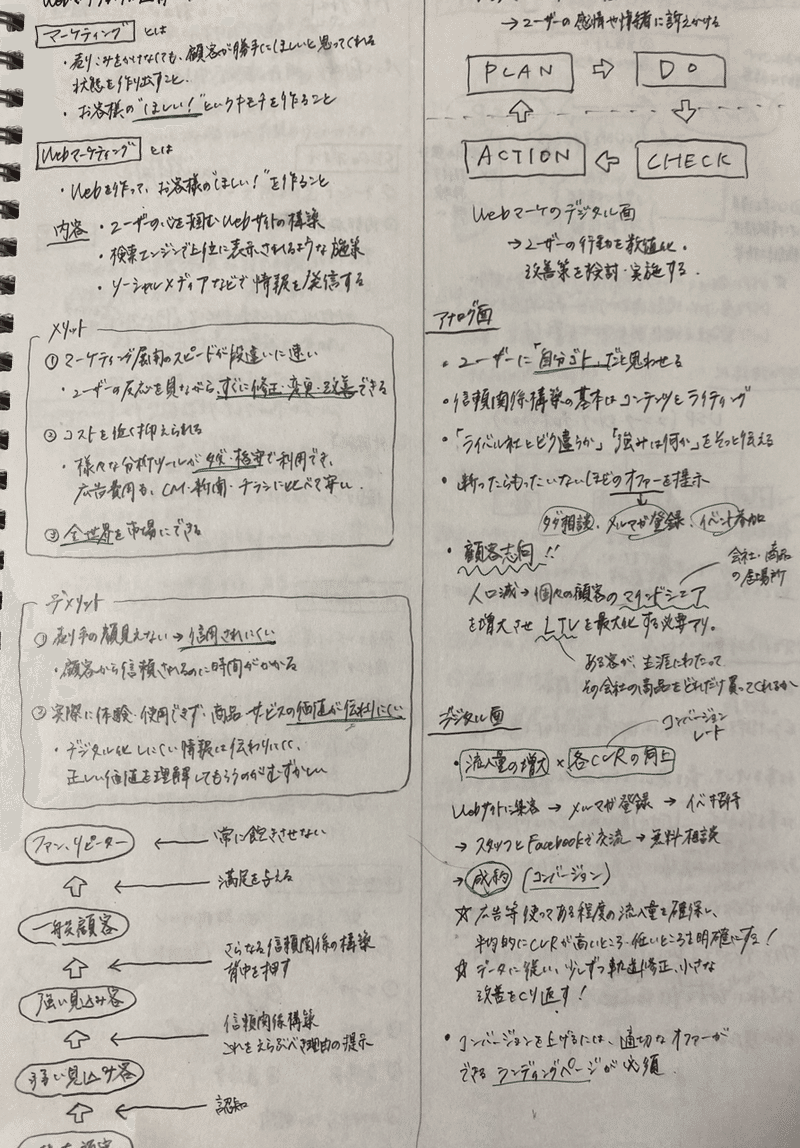 マーケティング とは
・売りこみをかけなくても、顧客が勝手にほしいと思ってくれる
状態を作り出すこと。
・お客様の"ほしい！"というキモチを作ること
Webマーケティング とは
・Webを作って、お客様の"ほしい！"を作ること
内容 ・ユーザーの心を掴むWebサイトの構築
・検索エンジンで上位に表示されるような施策
・ソーシャルメディアなどで情報を発信する
メリット
① マーケティング展開のスピードが段違いに速い
・ユーザーの反応を見ながら、すぐに修正・変更・改善できる
② コストを低く抑えられる
・様々な分析ツールが無償・格安で利用でき、
広告費用も、CM・新聞・チラシに比べて安い。
③ 全世界を市場にできる
デメリット
① 売り手の顔見えない→信用されにくい
・顧客から信頼されるのに時間がかかる
② 実際に体験・使用できず、商品サービスの価値が伝わりにくい
・デジタル化しにくい情報は伝わりにくく、
正しい価値を理解してもらうのがむずかしい
ファン、リピーター ← 常に飽きさせない
⇧ ← 満足を与える
一般顧客
⇧ ← さらなる信頼関係の構築
背中を押す
強い見込み客
⇧ ← 信頼関係構築
これをえらぶべき理由の提示
弱い見込み客
⇧ ← 認知
→ユーザーの感情や情緒に訴えかける
PLAN ⇨ DO
⇧ ⇩
ACTION ⇦ CHECK
Webマーケのデジタル面
→ユーザーの行動を数値化、
改善策を検討・実施する。
アナログ面
・ユーザーに「自分ゴト」だと思わせる
・信頼関係構築の基本はコンテンツとライティング
・「ライバル社とどう違うか」「強みは何か」をそっと伝える
・断ったらもったいないほどのオファーを提示
タダ相談、メルマガ登録、イベント参加
・顧客志向!!
会社・商品
の居場所
人口減→個々の顧客のマインドシェア
を増大させLTVを最大化する必要アリ。
ある客が、生涯にわたって
その会社の商品をどれだけ買ってくれるか
デジタル面
コンバージョン
レート
・流入量の増大 × 各CVRの向上
Webサイトに集客 → メルマガ登録 → イベ招待
→ スタッフとFacebookで交流 → 無料相談
→ 成約 (コンバージョン)
☆ 広告等使ってある程度の流入量を確保し、
平均的にCVRが高いところ・低いところを明確にする！
☆ データに従い、少しずつ軌道修正、小さな
改善をくり返す！
・コンバージョンを上げるには、適切なオファーが
できるランディングページが必須。